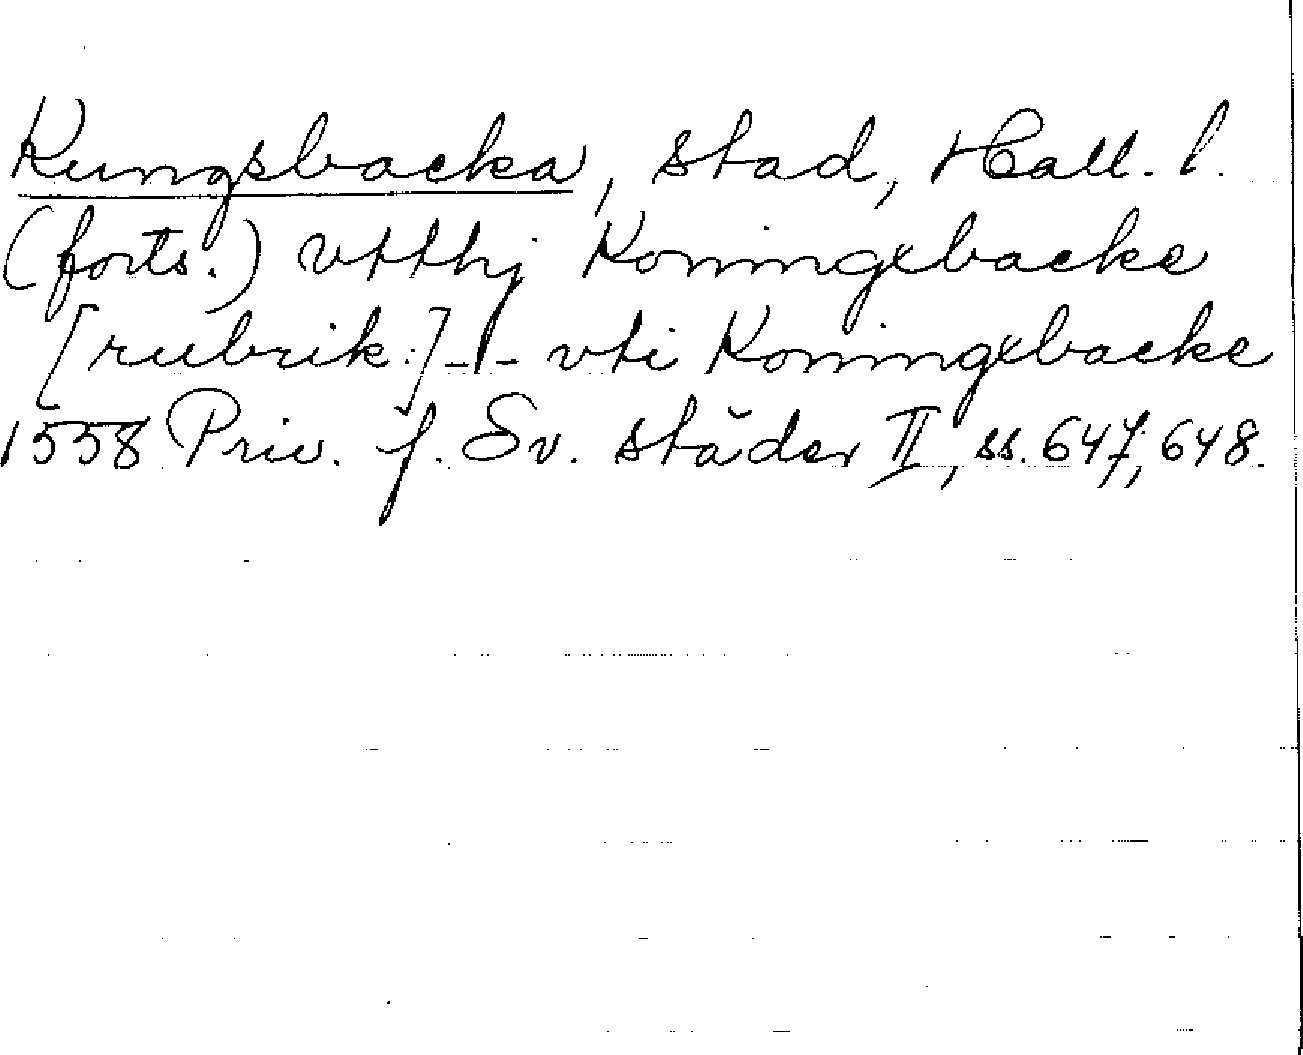 Kungsbacka, stad, Hall. l.
(forts.) vtthj Koningxbacke
[rubrik.] -|- vti Koningxbacke
1558 Priv. f. Sv. städer II, ss. 647, 648.